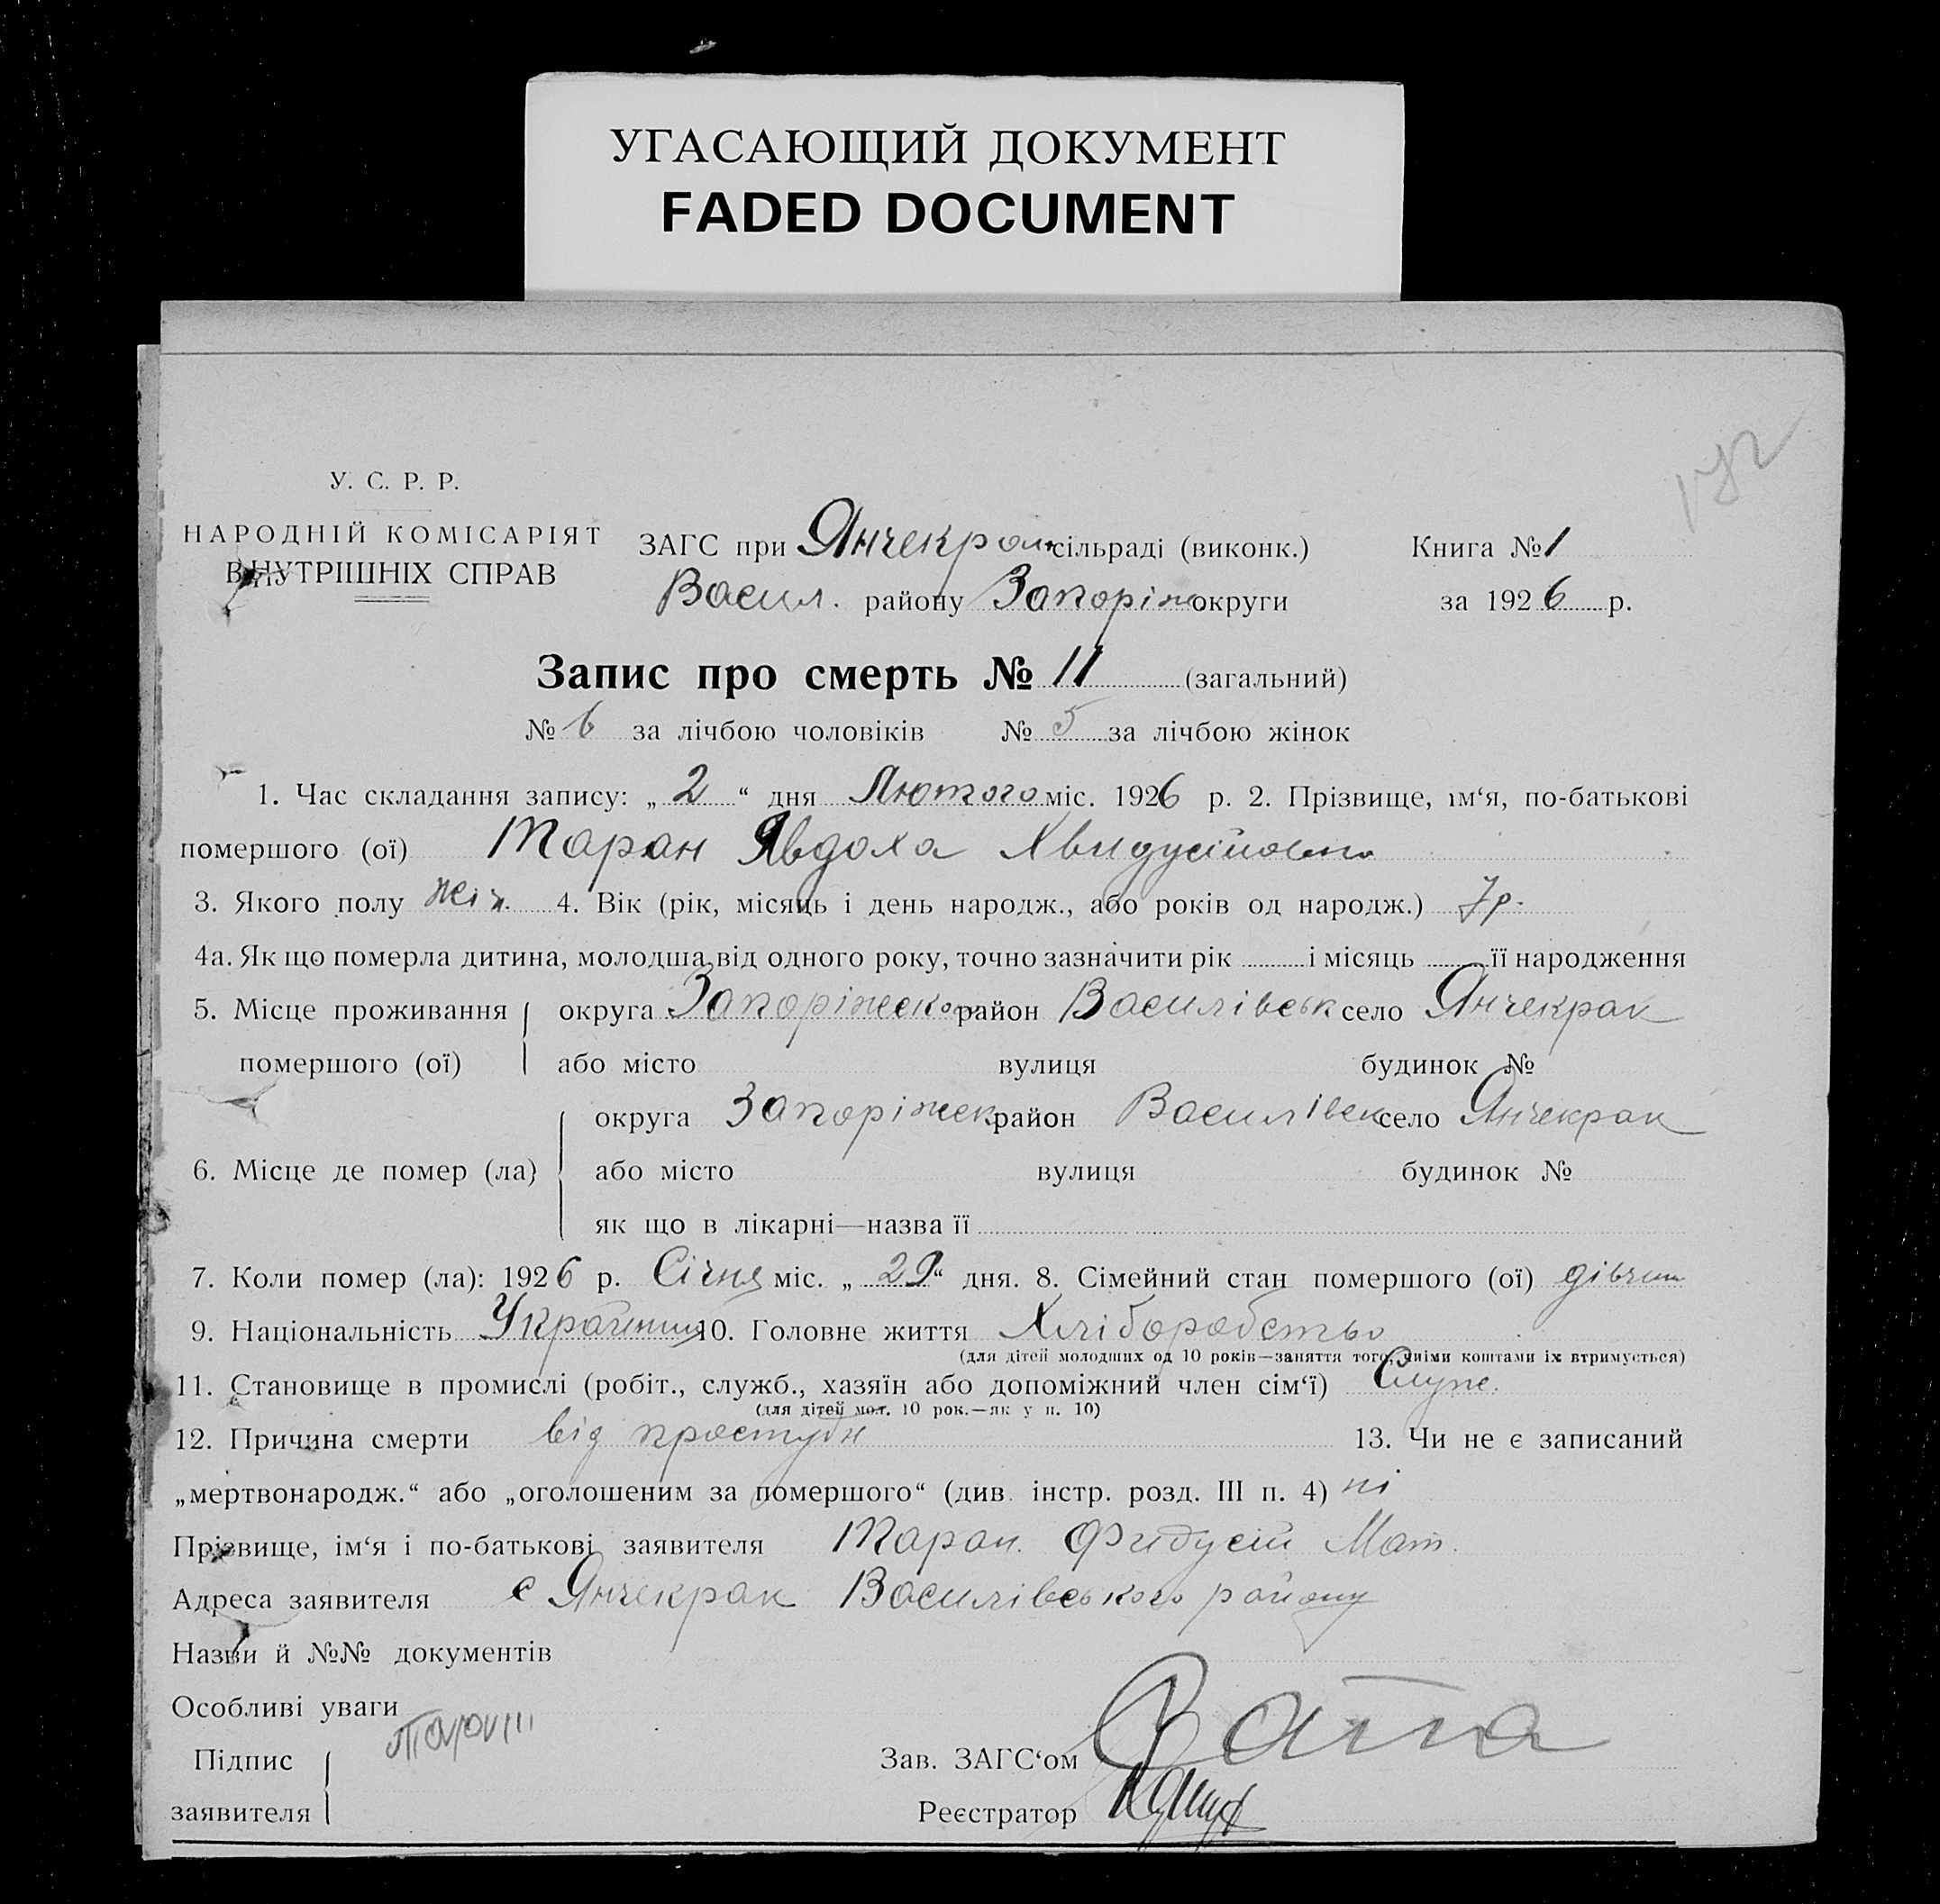 УГАСАЮЩИЙ ДОКУМЕНТ
FADED DOCUMENT
У. С. Р. Р.
НАРОДНІЙ КОМІСАРІЯТ
ВНУТРІШНІХ СПРАВ
ЗАГС при Янчекрак сільраді (виконк.) Книга № 1
Васил. району Запоріж округи за 1926 р.
Запис про смерть № 11 (загальний)
№ 6 за лічбою чоловіків № 5 за лічбою жінок
1. Час складання запису: „ 2 “ дня Лютого міс. 1926 р. 2. Прізвище, ім‘я, по-батькові
помершого (ої) Таран Явдоха Хвидусійовна
3. Якого полу жін. 4. Вік (рік, місяць і день народж., або років од народж.) 7 р.
4а. Як що померла дитина, молодша від одного року, точно зазначити рік і місяць її народження
5. Місце проживання округа Запоріжськ район Василівськ село Янчекрак
помершого (ої) або місто вулиця будинок №
округа Запоріжськ район Василівськ село Янчекрак
6. Місце де помер (ла) або місто вулиця будинок №
як що в лікарні—назва її
7. Коли помер (ла): 1926 р. Січня міс. „ 29 “ дня. 8. Сімейний стан помершого (ої) дівчин
9. Національність 10. Головне життя Хліборобство
(для дітей молодших од 10 років—заняття того, чиїми коштами їх втримується)
11. Становище в промислі (робіт., служб., хазяїн або допоміжний член сім‘ї) Служ.
(для дітей мол. 10 рок.—як у п. 10)
12. Причина смерти від простуди 13. Чи не є записаний
„мертвонародж.“ або „оголошеним за помершого“ (див. інстр. розд. III п. 4) ні
Прізвище, ім‘я і по-батькові заявителя Таран Фидусій Мат.
Адреса заявителя с Янчекрак Василівського району
Назви й №№ документів
Особливі уваги
Підпис
заявителя
Зав. ЗАГС‘ом
Реєстратор